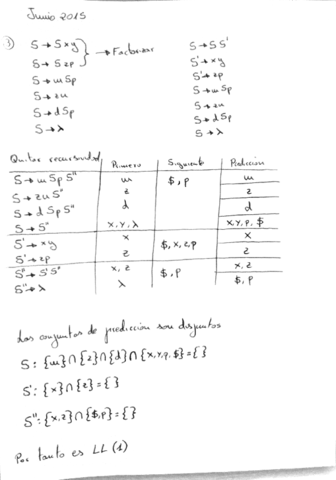 Junio 2015
1) S → Sxy
S → Szp
→ Factorizar
S → mSp
S → zu
S → dSp
S → λ
S → SS'
S' → xy
S' → zp
S → mSp
S → zu
S → dSp
S → λ
Quitar recursividad Primero Siguiente Predicción
S → mSpS" m $,p m
S → zuS" z z
S → dSpS" d d
S → S" x,y,λ x,y,p,$
S' → xy x $,x,z,p x
S' → zp z z
S" → S'S" x,z $,p x,z
S" → λ λ $,p
Los conjuntos de predicción son disjuntos
S: {m}∩{z}∩{d}∩{x,y,p,$}={}
S': {x}∩{z}={}
S": {x,z}∩{$,p}={}
Por tanto es LL(1)